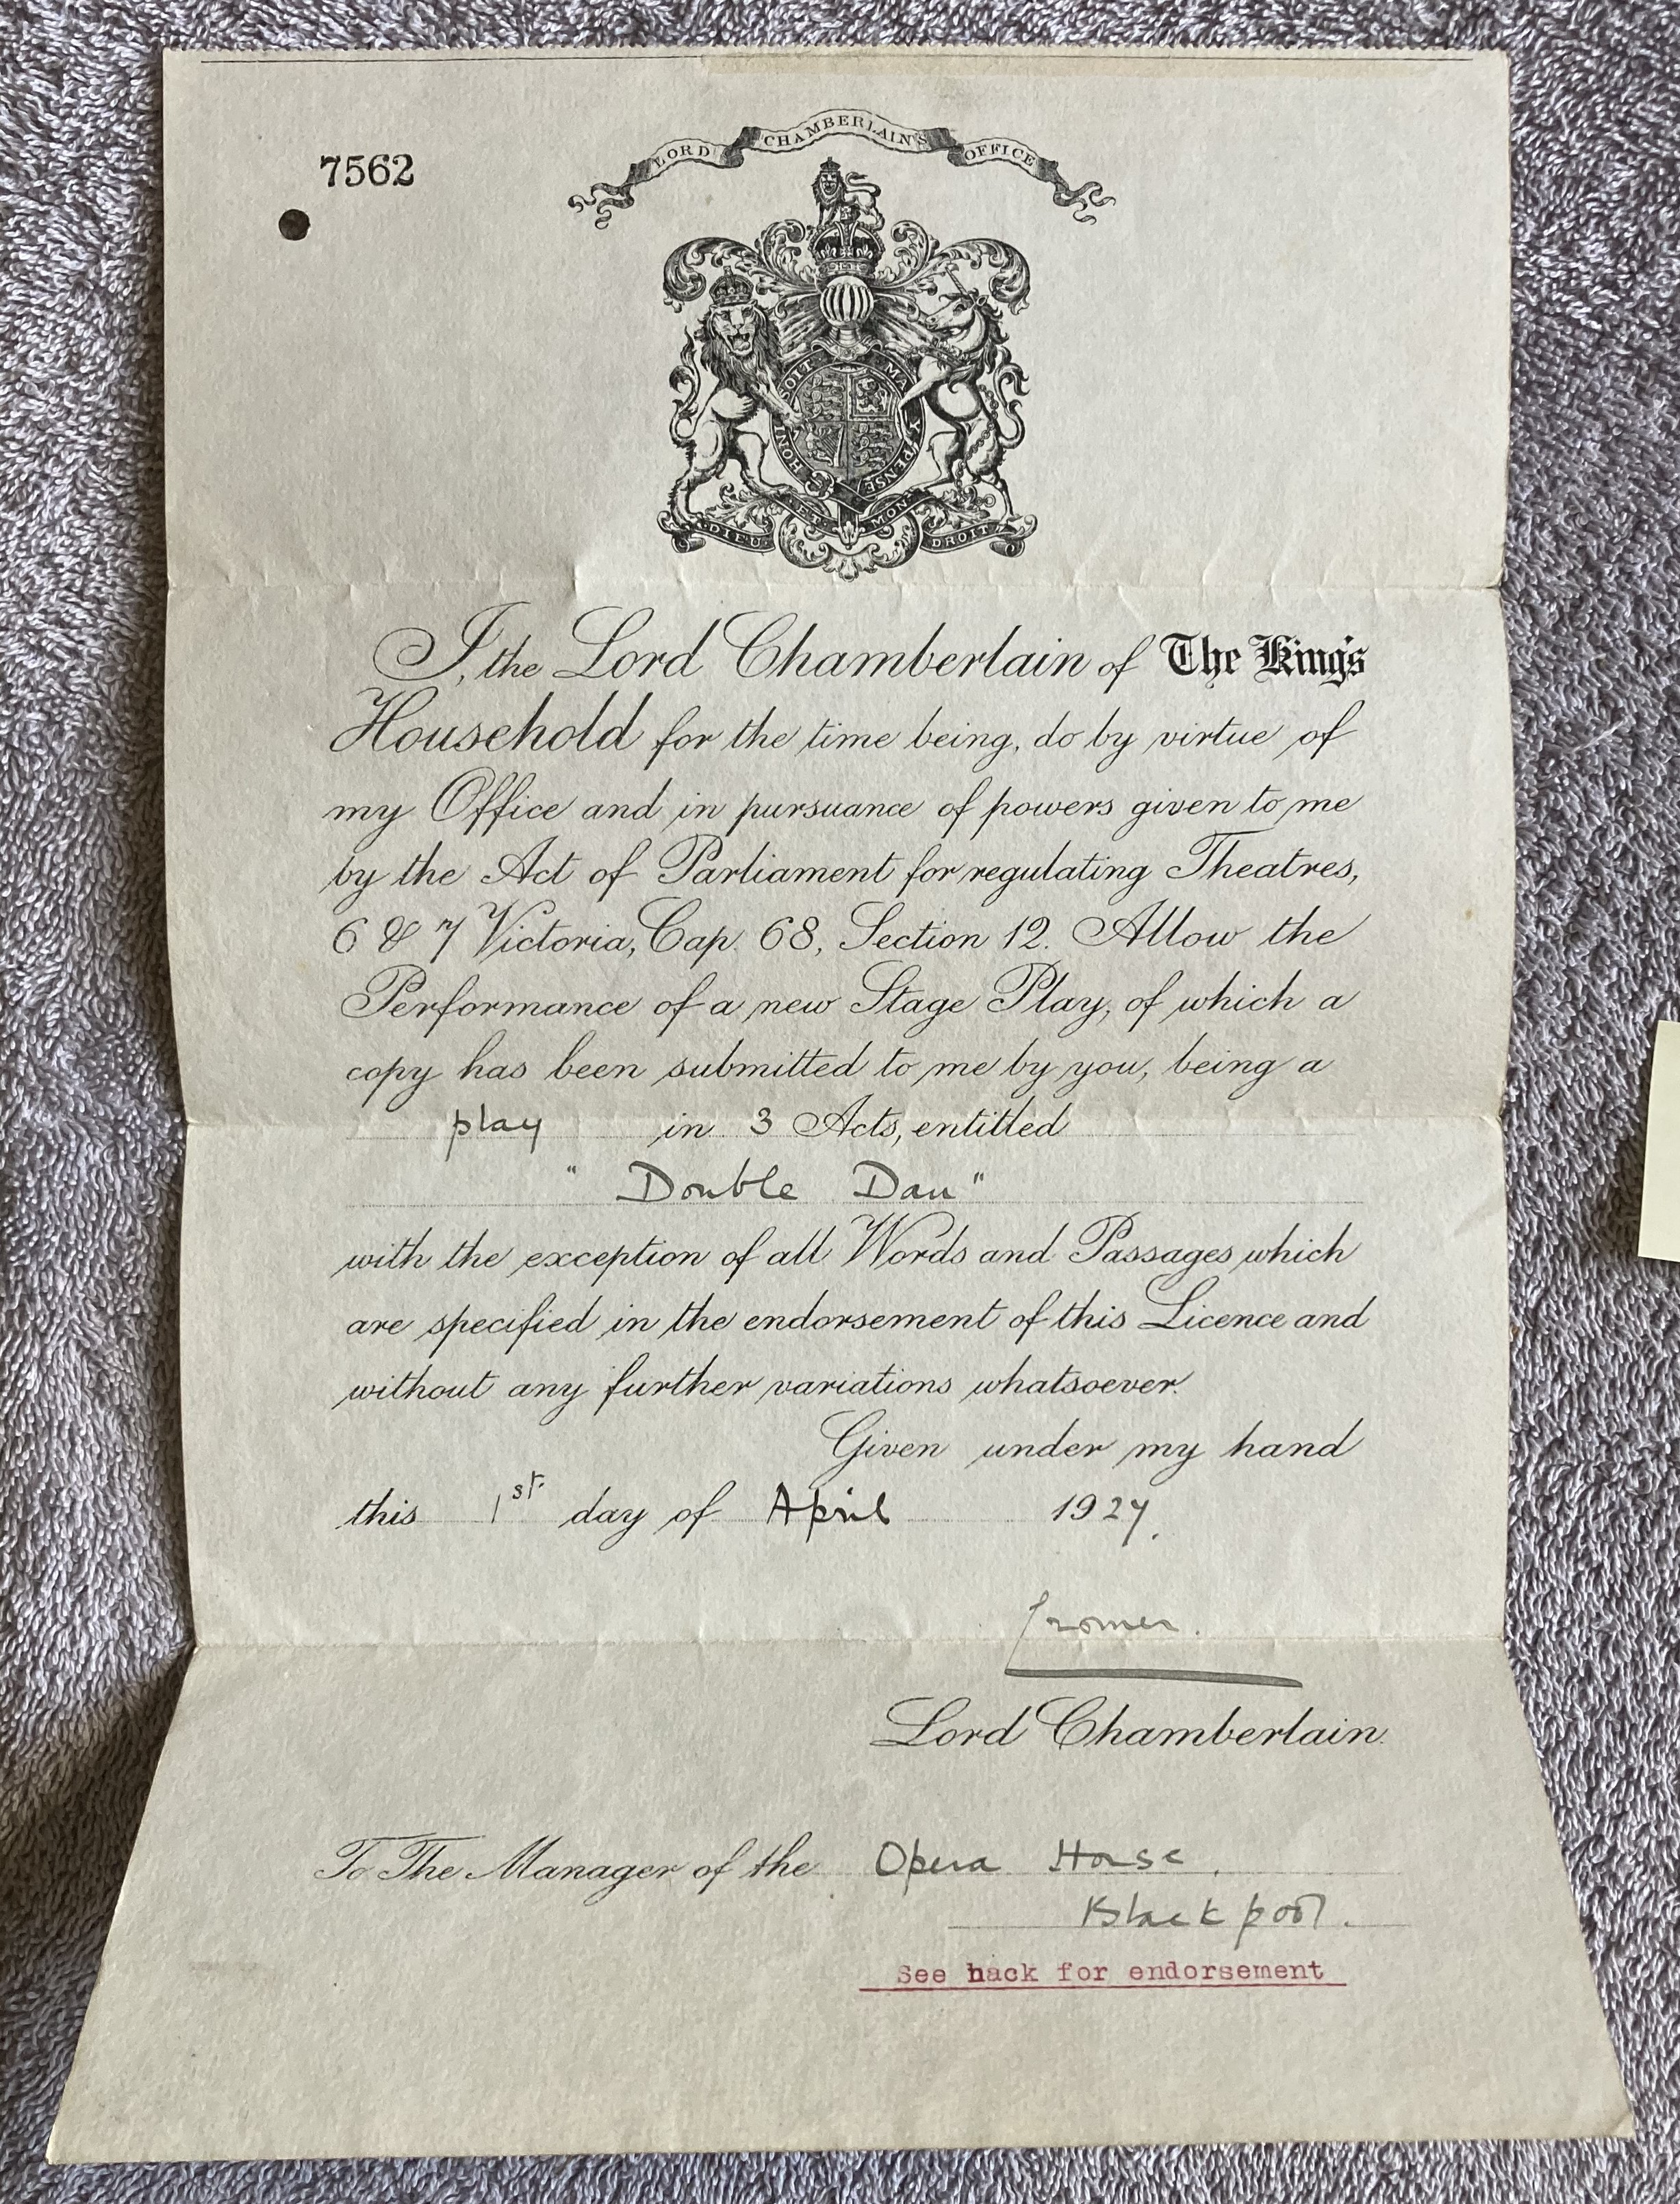 7562
LORD CHAMBERLAIN'S OFFICE
HONI SOIT MAL Y PENSE
DIEU ET MON DROIT
I, the Lord Chamberlain of The King's
Household for the time being, do by virtue of
my Office and in pursuance of powers given to me
by the Act of Parliament for regulating Theatres,
6 & 7 Victoria, Cap. 68, Section 12. Allow the
Performance of a new Stage Play, of which a
copy has been submitted to me by you, being a
play in 3 Acts, entitled
" Double Dan "
with the exception of all Words and Passages which
are specified in the endorsement of this Licence and
without any further variations whatsoever.
Given under my hand
this 1st. day of April 1927.
Cromer.
Lord Chamberlain.
To The Manager of the Opera House,
Blackpool.
See back for endorsement